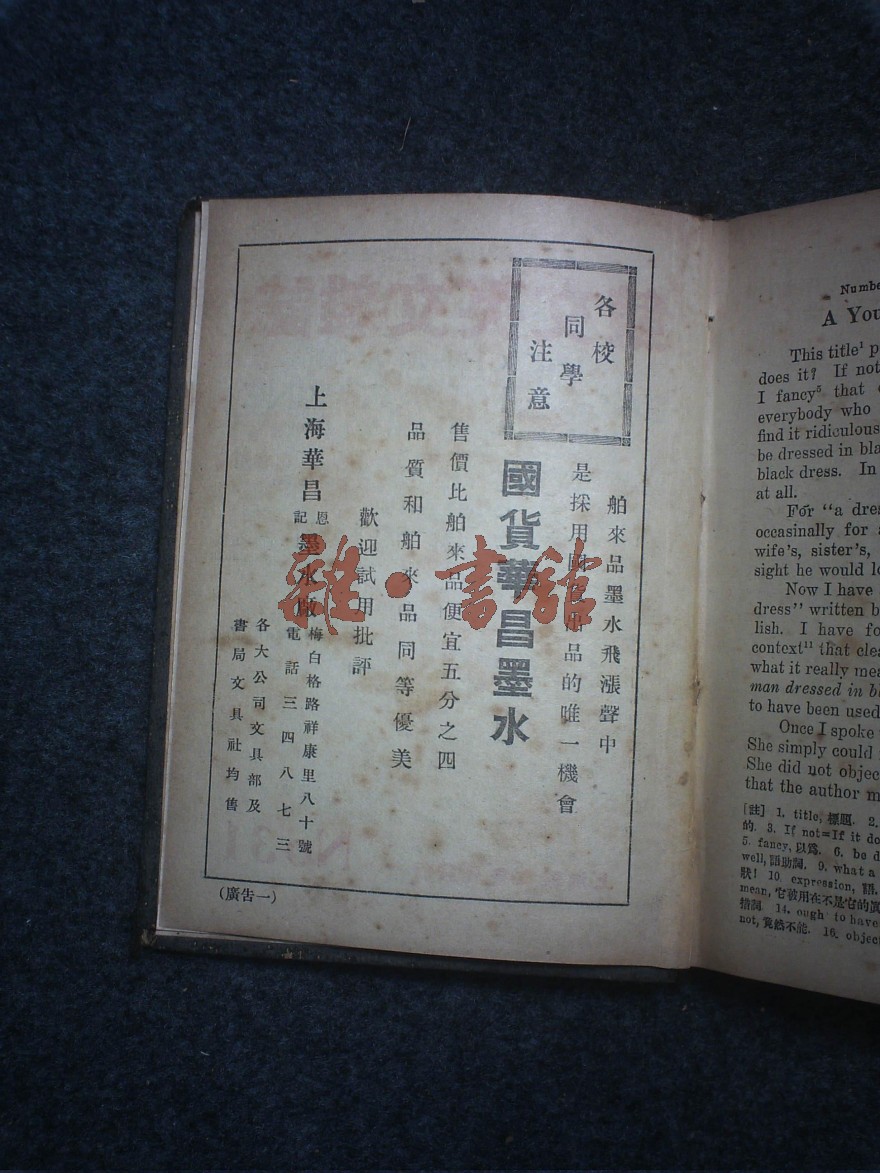 各校
同學
注意
舶來品墨水飛漲聲中
是採用國貨出品的唯一機會
國貨華昌墨水
售價比舶來品便宜五分之四
品質和舶來品同等優美
歡迎試用批評
上海華昌恩記墨水廠
梅白格路祥康里八十號
電話三四八七三
各大公司文具部及
書局文具社均售
(廣告一)
雜·書館
Numbe
A You
This title¹ p
does it? If not
I fancy⁵ that
everybody who
find it ridiculous
be dressed in bla
black dress. In
at all.
For "a dres
occasinally for a
wife's, sister's,
sight he would lo
Now I have
dress" written b
lish. I have fo
context¹¹ that clea
what it really mea
man dressed in bl
to have been used
Once I spoke
She simply could
She did not objec
that the author m
[註] 1. title, 標題. 2.
的. 3. If not=If it do
5. fancy, 以爲. 6. be d
well, 語助詞. 9. what a
狀! 10. expression, 語.
mean, 它被用在不是它的眞
措詞. 14. ough to have
not, 竟然不能. 16. object